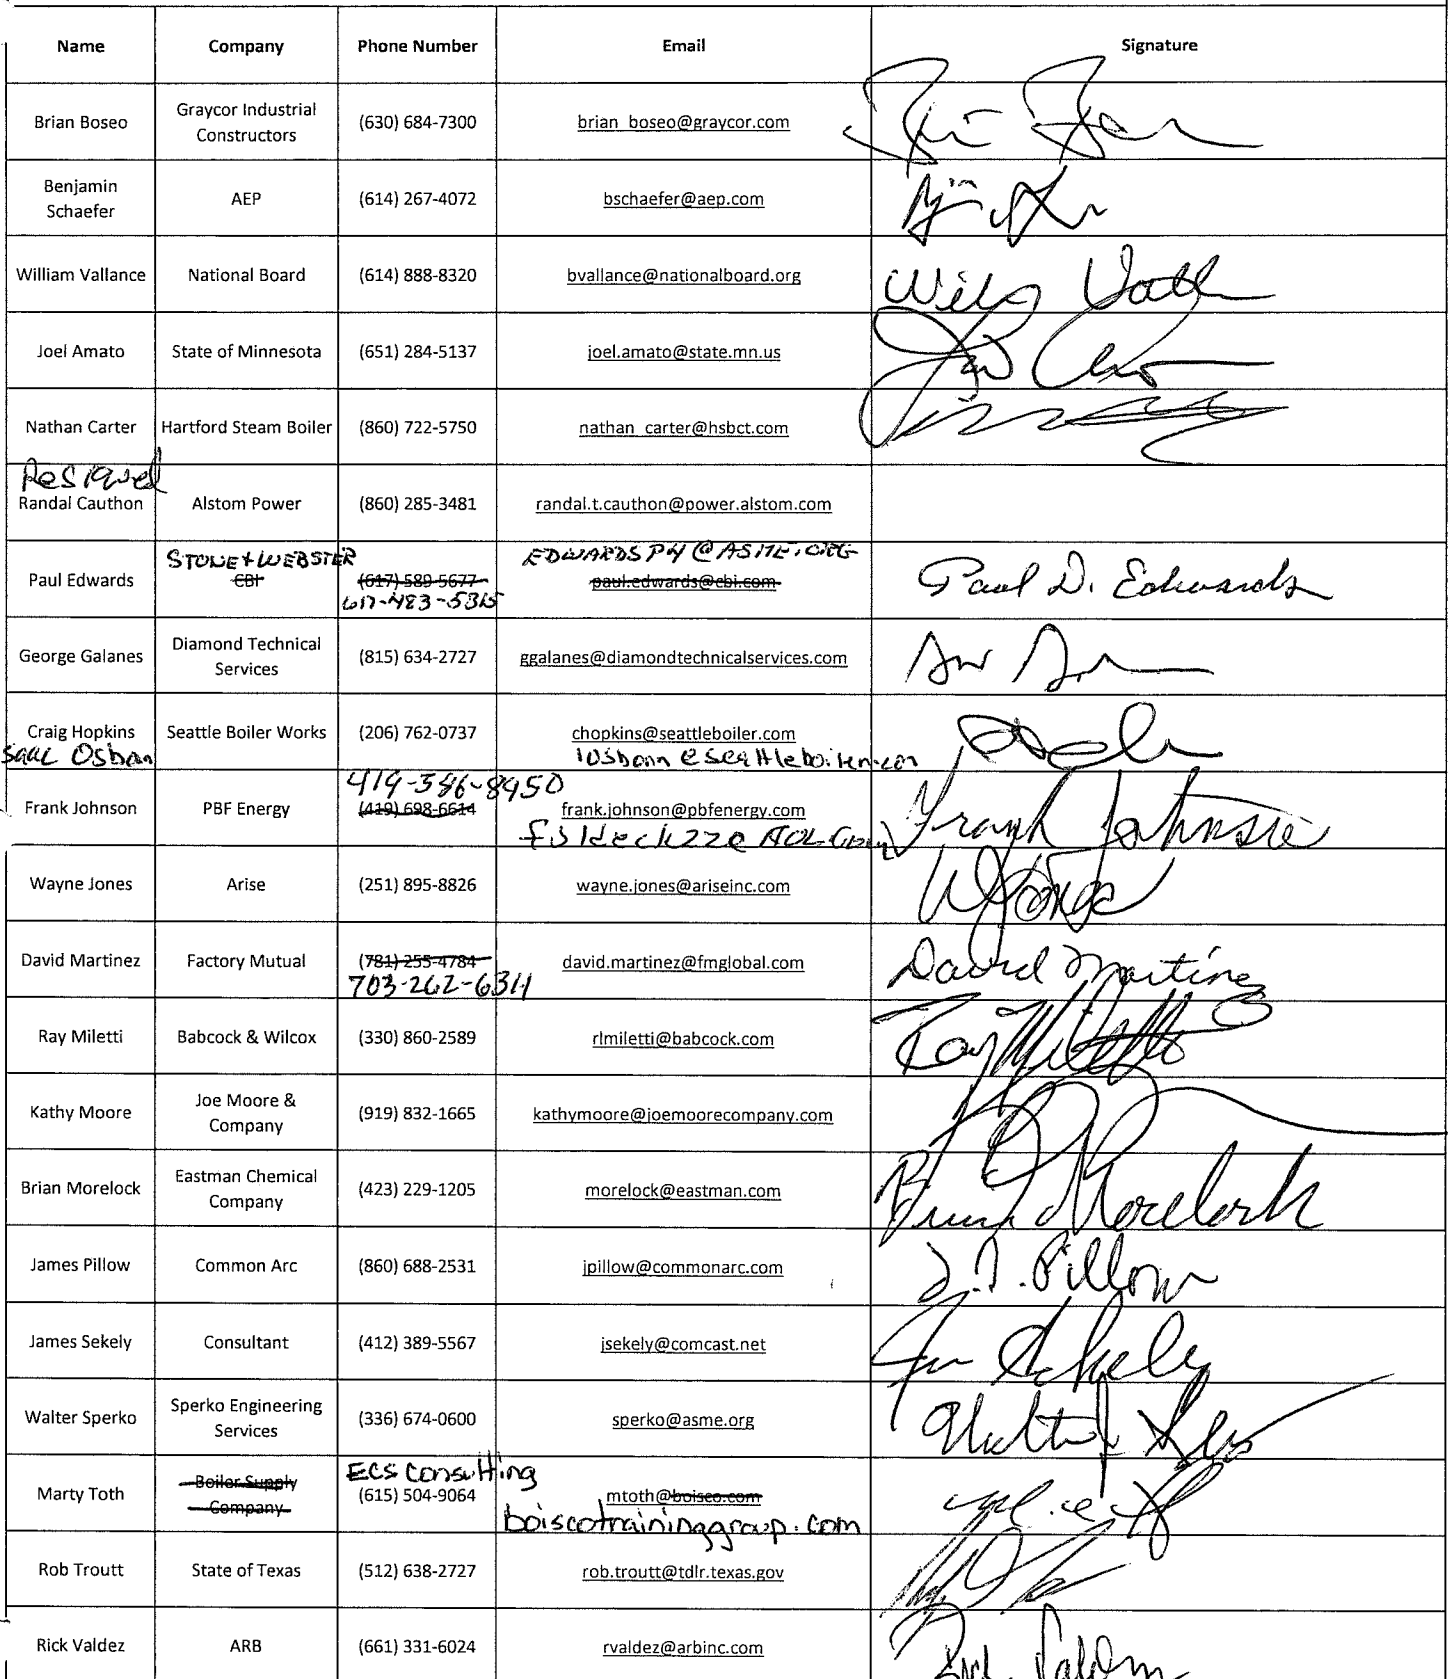 Name Company Phone Number Email Signature
Brian Boseo Graycor Industrial Constructors (630) 684-7300 brian boseo@graycor.com
Benjamin Schaefer AEP (614) 267-4072 bschaefer@aep.com
William Vallance National Board (614) 888-8320 bvallance@nationalboard.org
Joel Amato State of Minnesota (651) 284-5137 joel.amato@state.mn.us
Nathan Carter Hartford Steam Boiler (860) 722-5750 nathan carter@hsbct.com
Resigned
Randal Cauthon Alstom Power (860) 285-3481 randal.t.cauthon@power.alstom.com
STONE + WEBSTER EDWARDSPW@ASME.ORG
Paul Edwards CBI (617) 589-5677 paul.edwards@cbi.com Paul D. Edwards
617-483-5315
George Galanes Diamond Technical Services (815) 634-2727 ggalanes@diamondtechnicalservices.com
Craig Hopkins Seattle Boiler Works (206) 762-0737 chopkins@seattleboiler.com
Osborn iosborn@seattleboiler.com
419-386-8950
Frank Johnson PBF Energy (419) 698-6614 frank.johnson@pbfenergy.com Frank Johnson
AOL.com
Wayne Jones Arise (251) 895-8826 wayne.jones@ariseinc.com WJones
David Martinez Factory Mutual (781) 255-4784 david.martinez@fmglobal.com David Martinez
703-262-6311
Ray Miletti Babcock & Wilcox (330) 860-2589 rlmiletti@babcock.com Ray Miletti
Kathy Moore Joe Moore & Company (919) 832-1665 kathymoore@joemoorecompany.com
Brian Morelock Eastman Chemical Company (423) 229-1205 morelock@eastman.com Brian Morelock
James Pillow Common Arc (860) 688-2531 jpillow@commonarc.com J.T. Pillow
James Sekely Consultant (412) 389-5567 jsekely@comcast.net Jim Sekely
Walter Sperko Sperko Engineering Services (336) 674-0600 sperko@asme.org
ECS Consulting
Marty Toth Boiler Supply Company (615) 504-9064 mtoth@boisco.com
boiscotraininggroup.com
Rob Troutt State of Texas (512) 638-2727 rob.troutt@tdlr.texas.gov
Rick Valdez ARB (661) 331-6024 rvaldez@arbinc.com